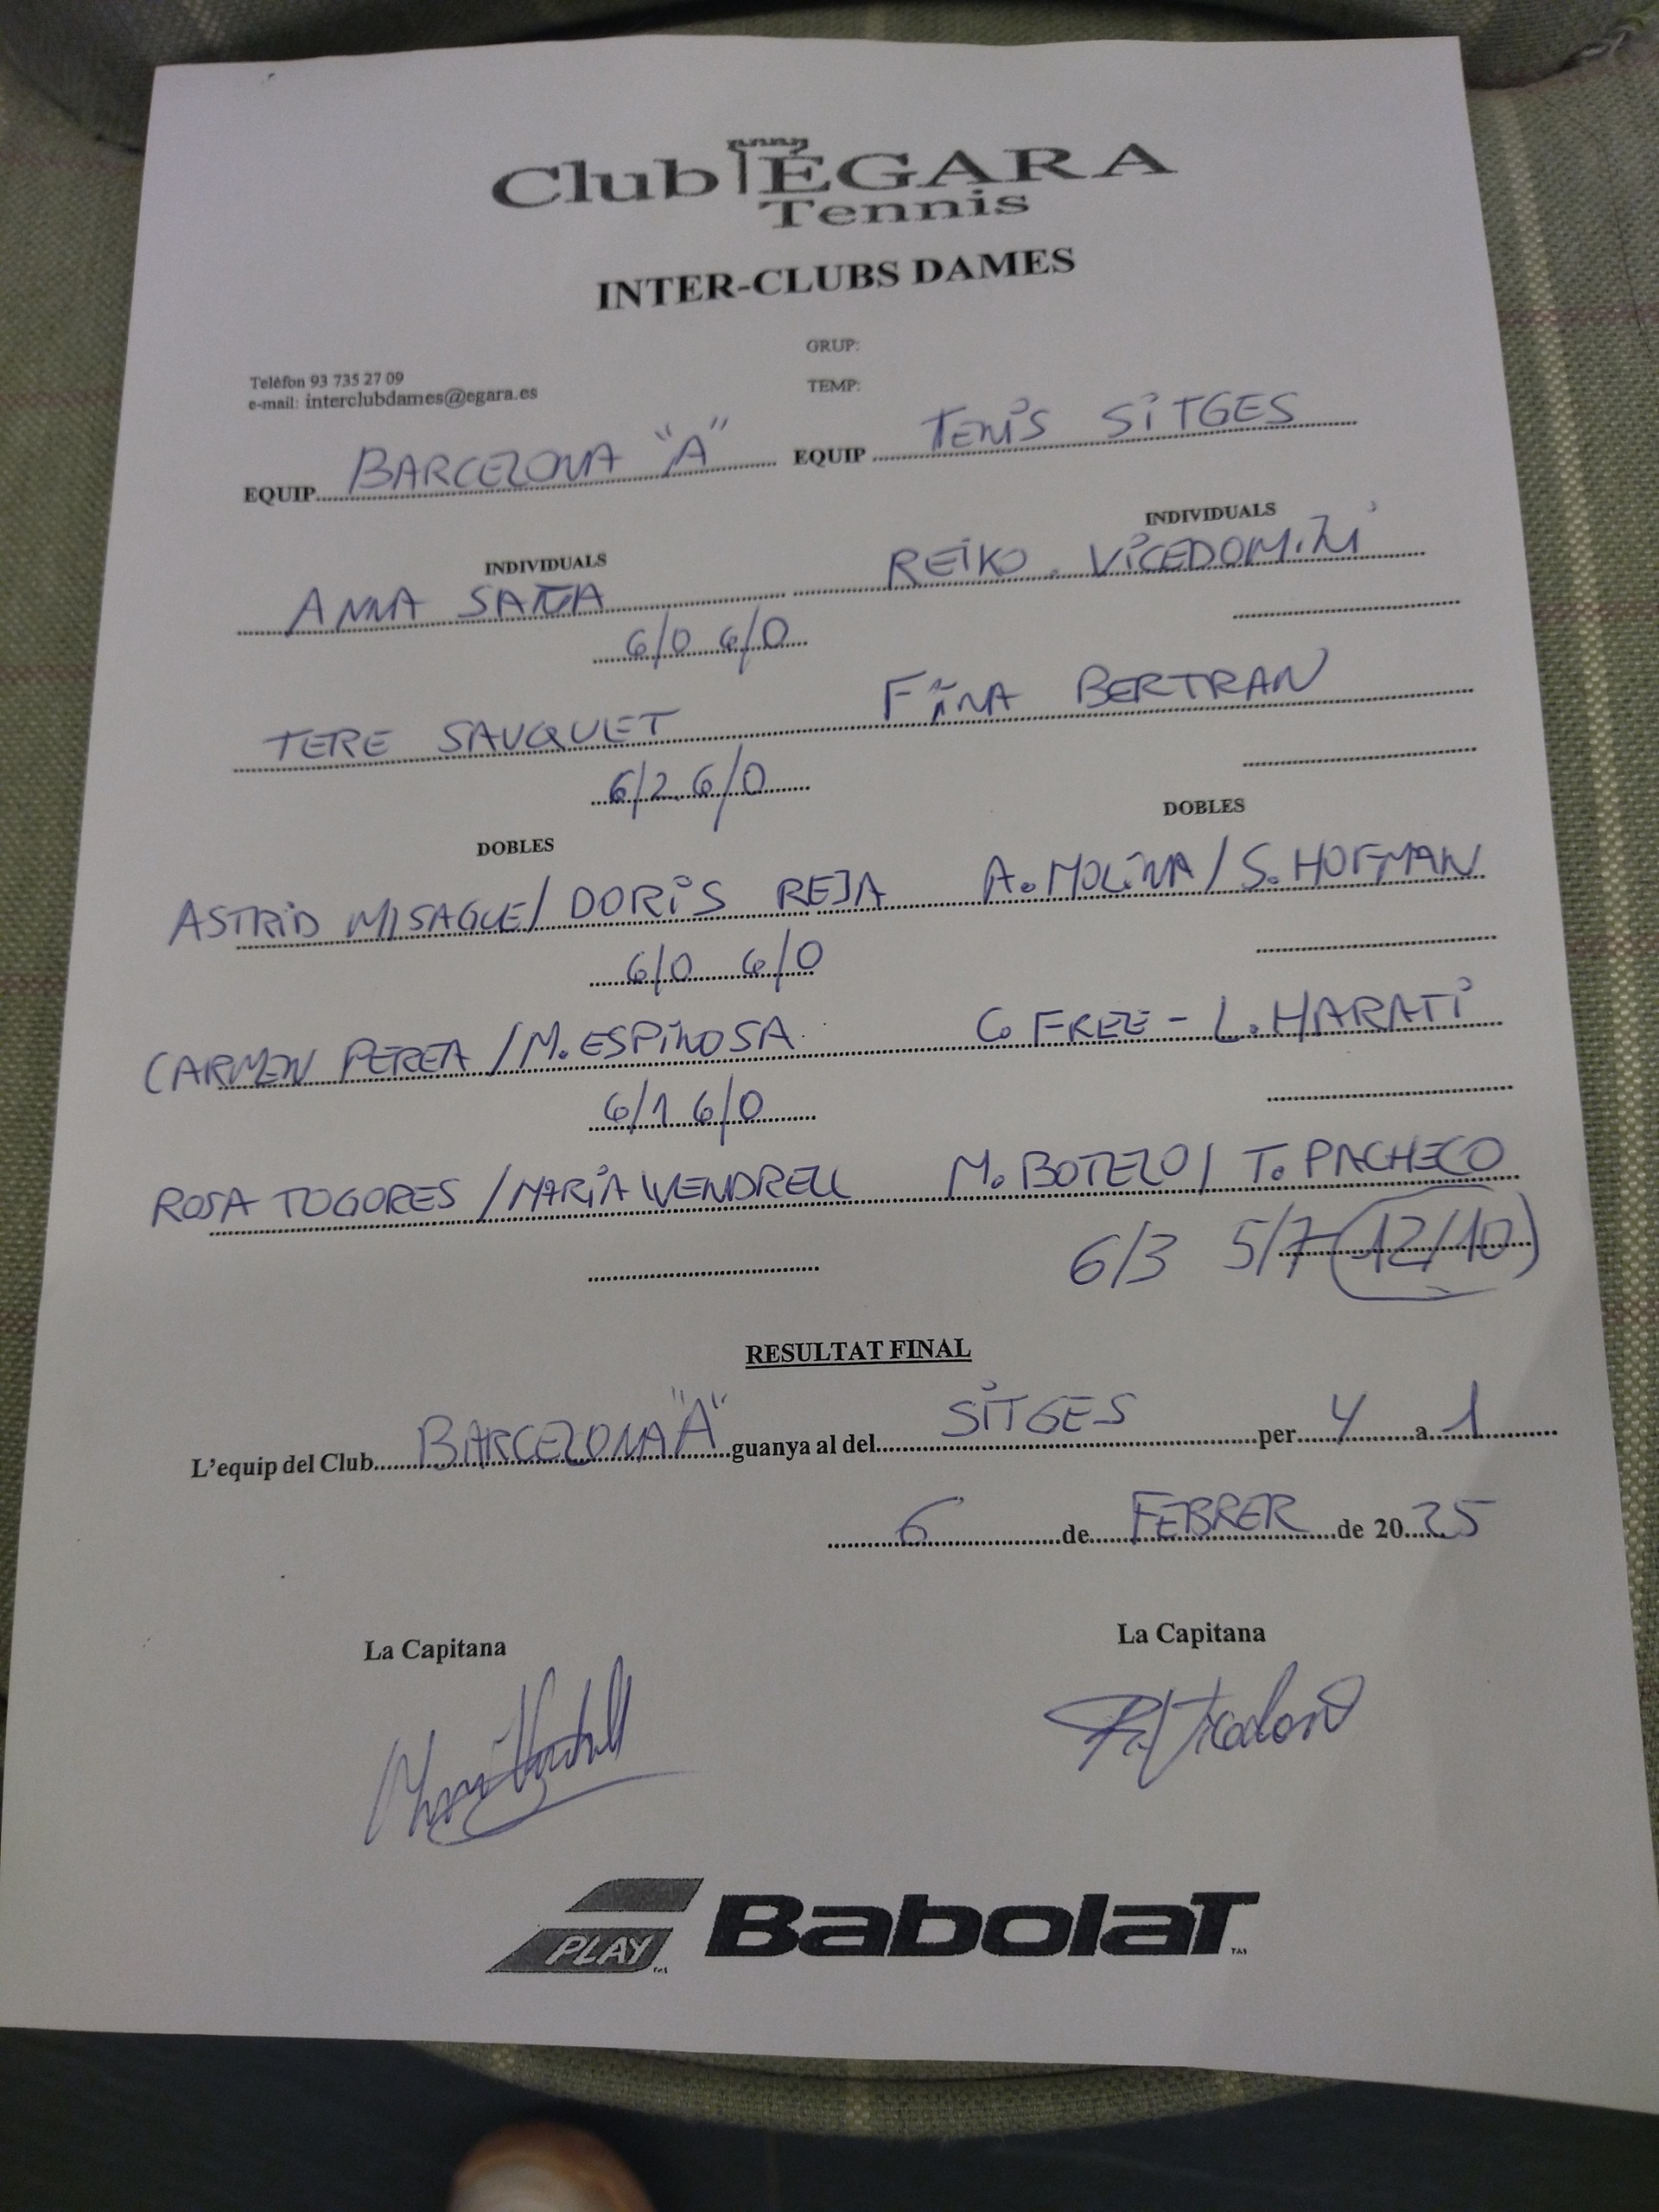 Club ÈGARA
Tennis
INTER-CLUBS DAMES
GRUP:
Telèfon 93 735 27 09
TEMP:
e-mail: interclubdames@egara.es
EQUIP BARCELONA "A" EQUIP TENIS SITGES
INDIVIDUALS INDIVIDUALS
ANNA SAÑA REIKO VICEDOMINI
6/0 6/0
TERE SAUQUET FINA BERTRAN
6/2 6/0
DOBLES DOBLES
ASTRID MISAGUE/ DORIS REJA A. MOLINA / S. HOFMAN
6/0 6/0
CARMEN PERETA / M. ESPINOSA C. FREE - L. HARATI
6/1 6/0
ROSA TOGORES / MARIA VENDRELL M. BOTELO / T. PACHECO
6/3 5/7 (12/10)
RESULTAT FINAL
L'equip del Club BARCELONA "A" guanya al del SITGES per 4 a 1
6 de FEBRER de 2025
La Capitana La Capitana
PLAY Babolat